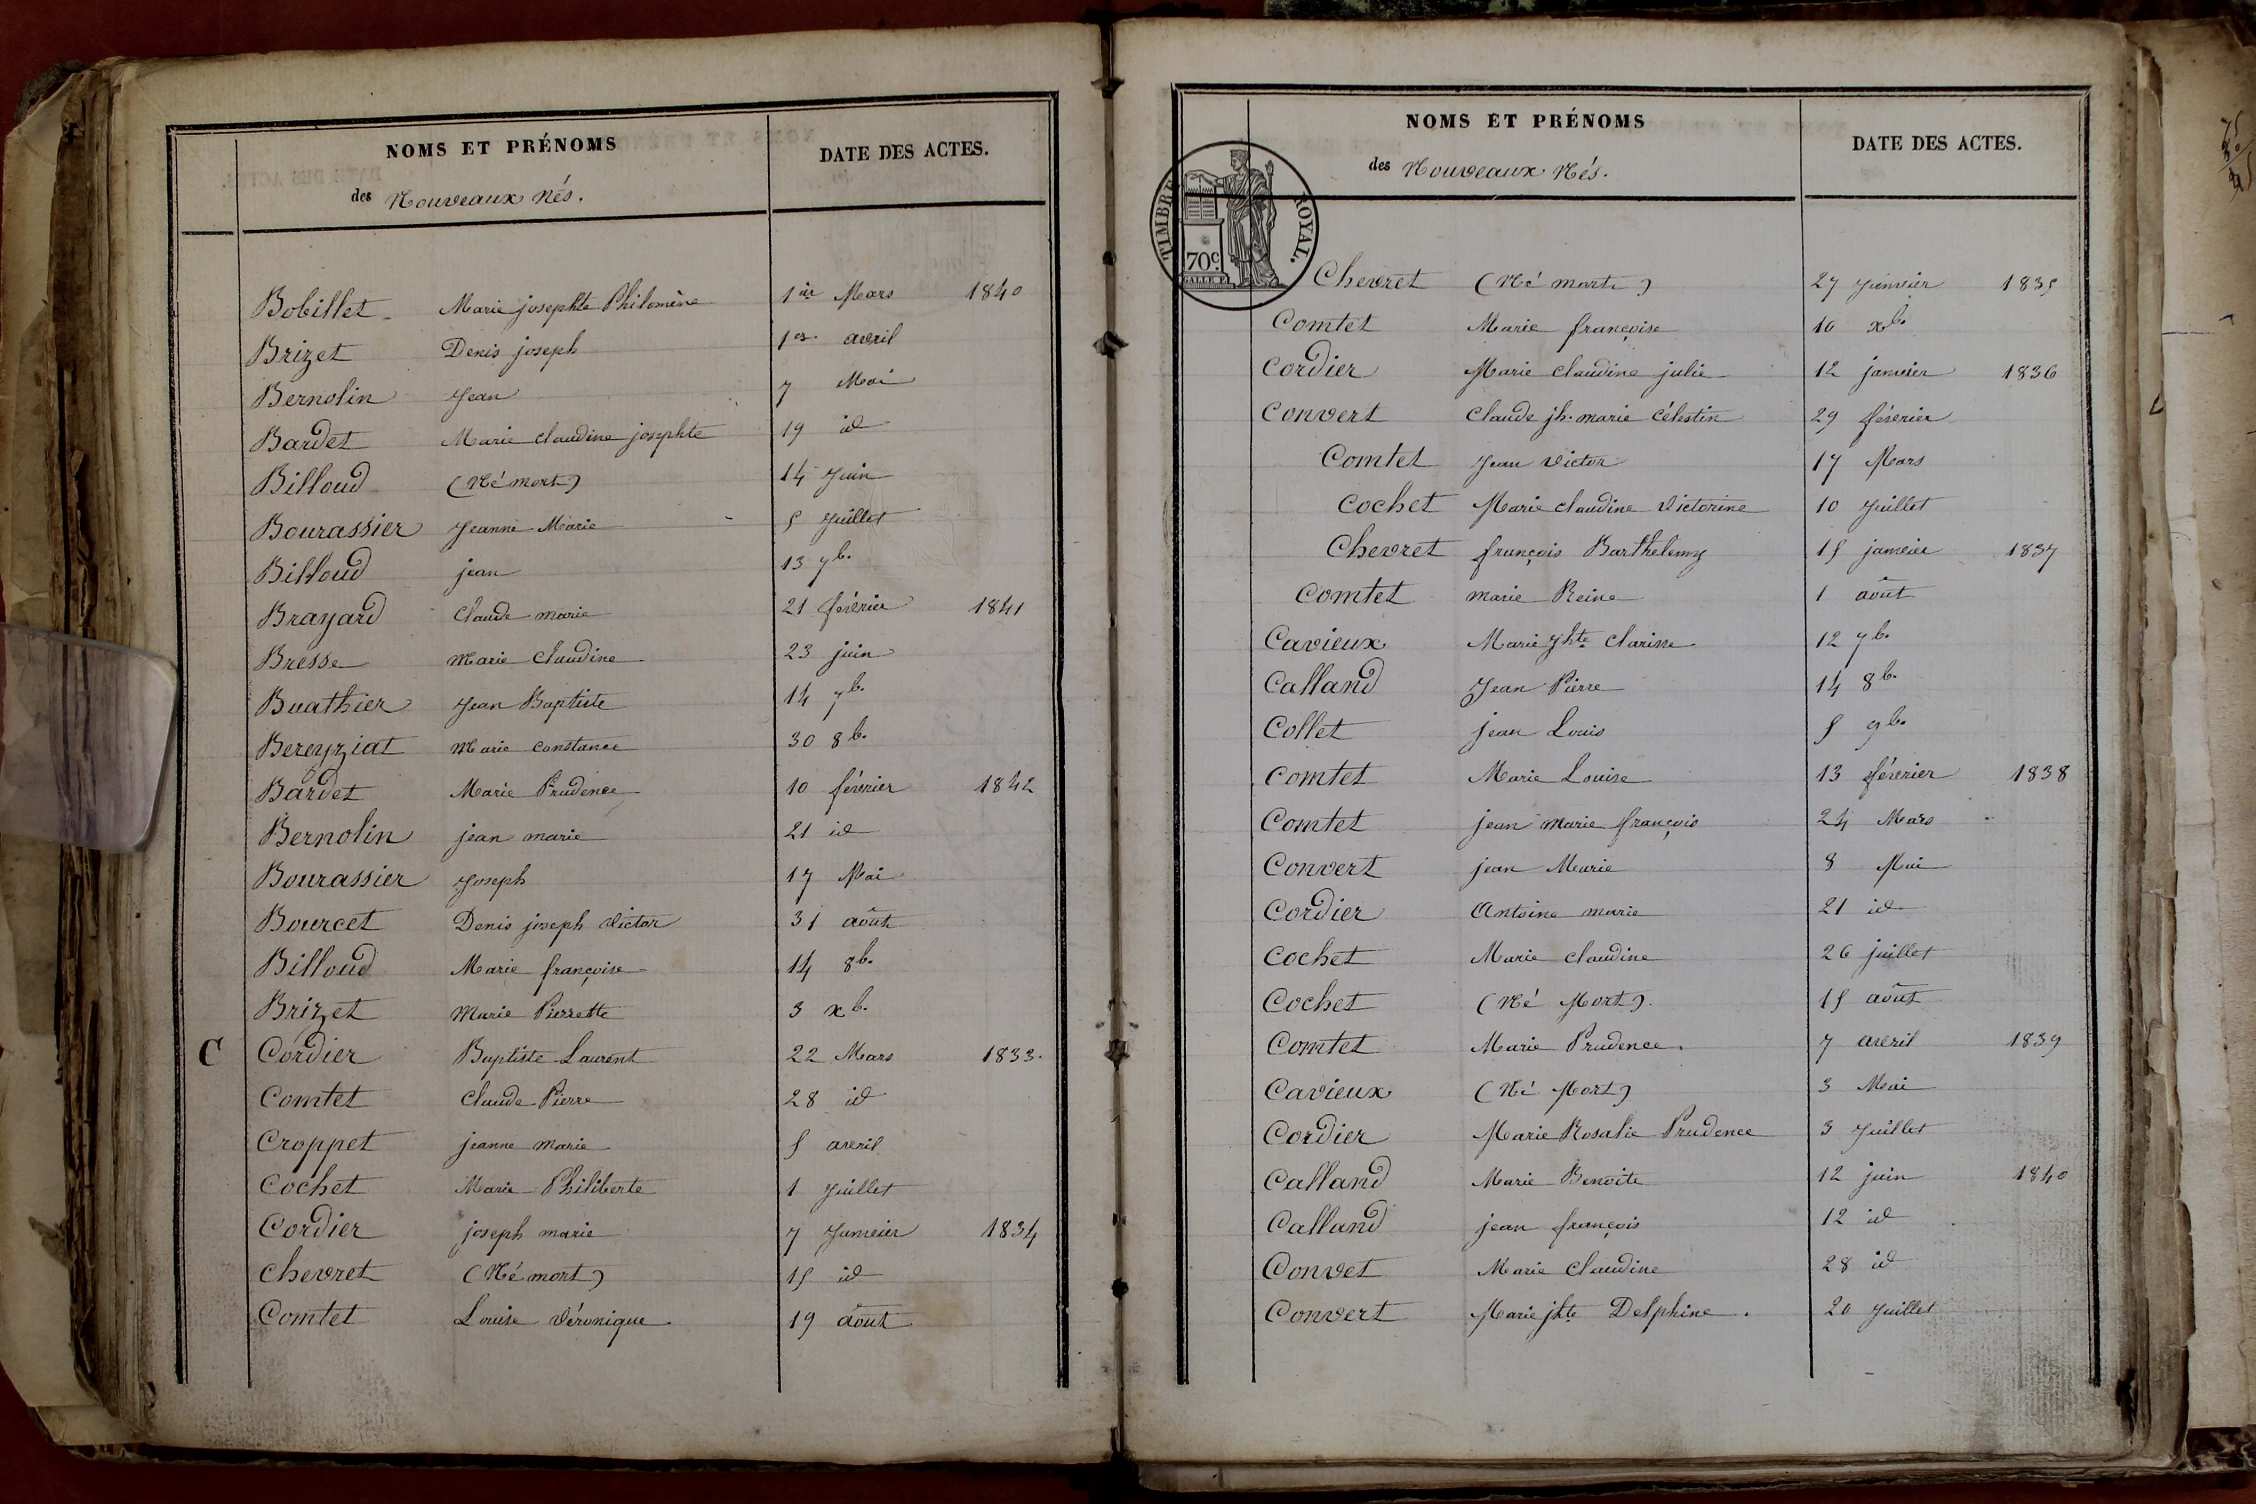 NOMS ET PRÉNOMS
des Nouveaux Nés.
DATE DES ACTES.
Bobillet Marie josephte Philomène 1er Mars 1840
Brizet Denis joseph 1er avril
Bernolin Jean 7 Mai
Bardet Marie claudine josephte 19 id
Billoud (Né mort) 14 Juin
Bourassier Jeanne Marie 5 Juillet
Billoud jean 13 7b.
Brayard Claude marie 21 février 1841
Bresse Marie Claudine 23 juin
Buathier Jean Baptiste 14 7b.
Bereyziat Marie constance 30 8b.
Bardet Marie Prudence 10 février 1842
Bernolin jean marie 21 id
Bourassier Joseph 17 Mai
Bourcet Denis joseph victor 31 août
Billoud Marie françoise 14 8b.
Brizet Marie Pierrette 3 xb.
C Cordier Baptiste Laurent 22 Mars 1833.
Comtet Claude Pierre 28 id
Croppet jeanne marie 5 avril
Cochet Marie Philiberte 1 Juillet
Cordier joseph marie 7 Janvier 1834
Chevret (Né mort) 15 id
Comtet Louise Véronique 19 août
NOMS ET PRÉNOMS
des Nouveaux Nés.
DATE DES ACTES.
TIMBRE ROYAL.
70c.
Chevret (Né mort) 27 Janvier 1835
Comtet Marie françoise 10 xb.
Cordier Marie Claudine julie 12 janvier 1836
Convert Claude jh. marie Célestin 29 février
Comtet Jean Victor 17 Mars
Cochet Marie claudine Victorine 10 Juillet
Chevret françois Barthelemy 15 janvier 1837
Comtet marie Reine 1 août
Cavieux Marie Jhte Clarisse 12 7b.
Calland Jean Pierre 14 8b.
Collet jean Louis 5 9b.
Comtet Marie Louise 13 février 1838
Comtet jean Marie françois 24 Mars
Convert jean Marie 8 Mai
Cordier Antoine marie 21 id
Cochet Marie Claudine 26 juillet
Cochet (Né Mort). 15 août
Comtet Marie Prudence. 7 avril 1839
Cavieux (Né Mort) 3 Mai
Cordier Marie Rosalie Prudence 3 Juillet
Calland Marie Benoite 12 juin 1840
Calland jean françois 12 id
Convet Marie Claudine 28 id
Convert Marie jhte Delphine. 20 Juillet